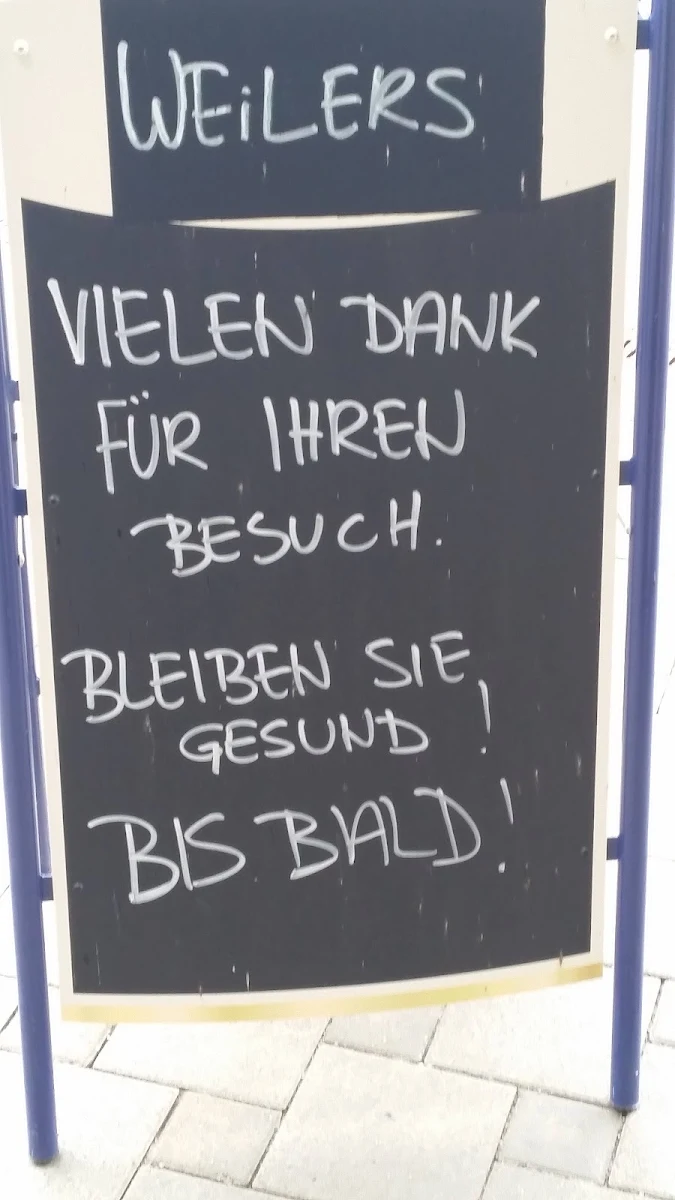 WEiLERS
VIELEN DANK
FÜR IHREN
BESUCH.
BLEIBEN SIE
GESUND!
BIS BALD!